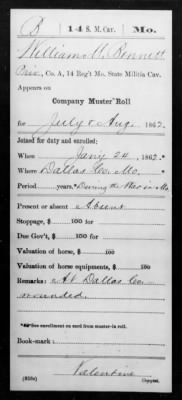 B | 14 S. M. Cav. | Mo.
William A. Bennett
Priv., Co. A, 14 Reg't Mo. State Militia Cav.
Appears on
Company Muster Roll
for July & Aug., 1862.
Joined for duty and enrolled:
When Jan'y 24, 1862.
Where Dallas Co. Mo.
Period years. During the War in Mo.
Present or absent Absent
Stoppage, $ 100 for
Due Gov't, $ 100 for
Valuation of horse, $ 100
Valuation of horse equipments, $ 100
Remarks: At Dallas Co.
wounded.
*See enrollment on card from muster-in roll.
Book-mark:
Valentine
(858c) Copyist.